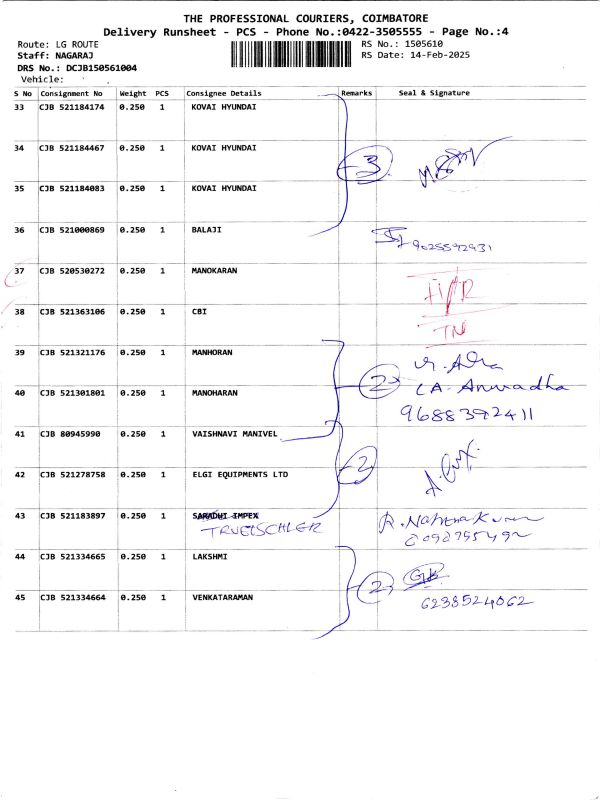 THE PROFESSIONAL COURIERS, COIMBATORE
Delivery Runsheet - PCS - Phone No.:0422-3505555 - Page No.:4
Route: LG ROUTE RS No.: 1505610
Staff: NAGARAJ RS Date: 14-Feb-2025
DRS No.: DCJB150561004
Vehicle:
S No Consignment No Weight PCS Consignee Details Remarks Seal & Signature
33 CJB 521184174 0.250 1 KOVAI HYUNDAI
34 CJB 521184467 0.250 1 KOVAI HYUNDAI 3
35 CJB 521184083 0.250 1 KOVAI HYUNDAI
36 CJB 521000869 0.250 1 BALAJI 9025592931
37 CJB 520530272 0.250 1 MANOKARAN
38 CJB 521363106 0.250 1 CBI
39 CJB 521321176 0.250 1 MANHORAN
40 CJB 521301801 0.250 1 MANOHARAN 2 CA. Anuradha
9688392411
41 CJB 80945990 0.250 1 VAISHNAVI MANIVEL
42 CJB 521278758 0.250 1 ELGI EQUIPMENTS LTD 2
43 CJB 521183897 0.250 1 SARADHI IMPEX
TRUETSCHLER
44 CJB 521334665 0.250 1 LAKSHMI
45 CJB 521334664 0.250 1 VENKATARAMAN 2 6238524062